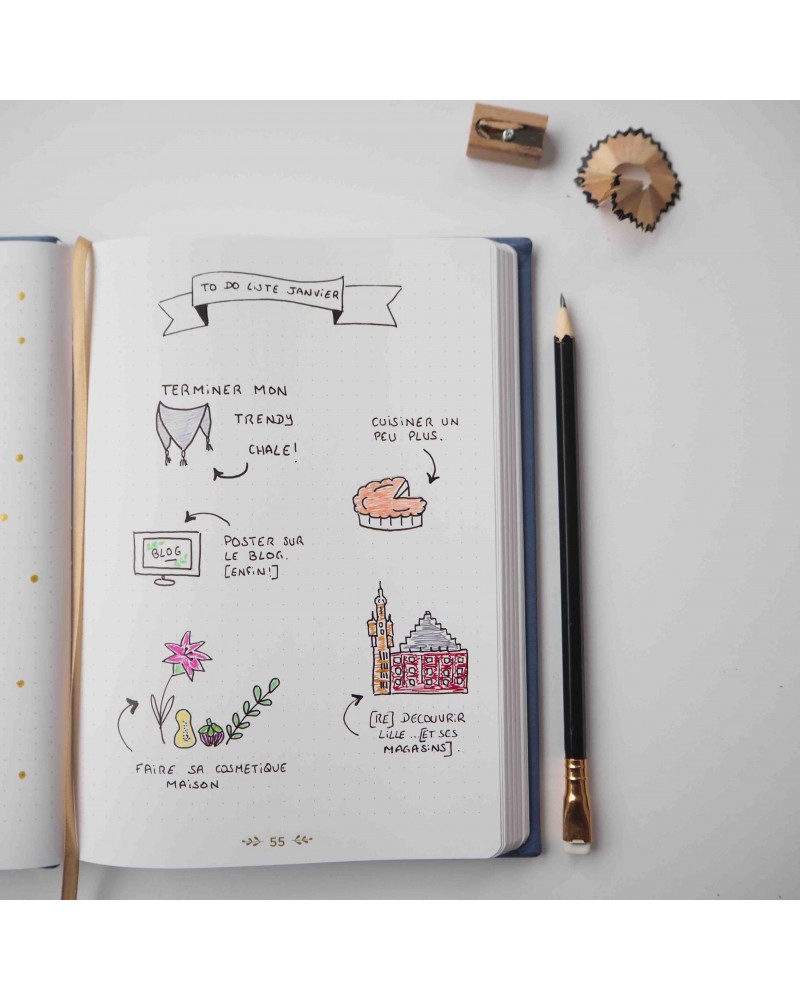 TO DO LISTE JANVIER
TERMINER MON
TRENDY
CHALE!
CUISINER UN
PEU PLUS.
BLOG
POSTER SUR
LE BLOG.
[ENFIN!]
[RE] DECOUVRIR
LILLE...[ET SES
MAGASINS].
FAIRE SA COSMETIQUE
MAISON
55